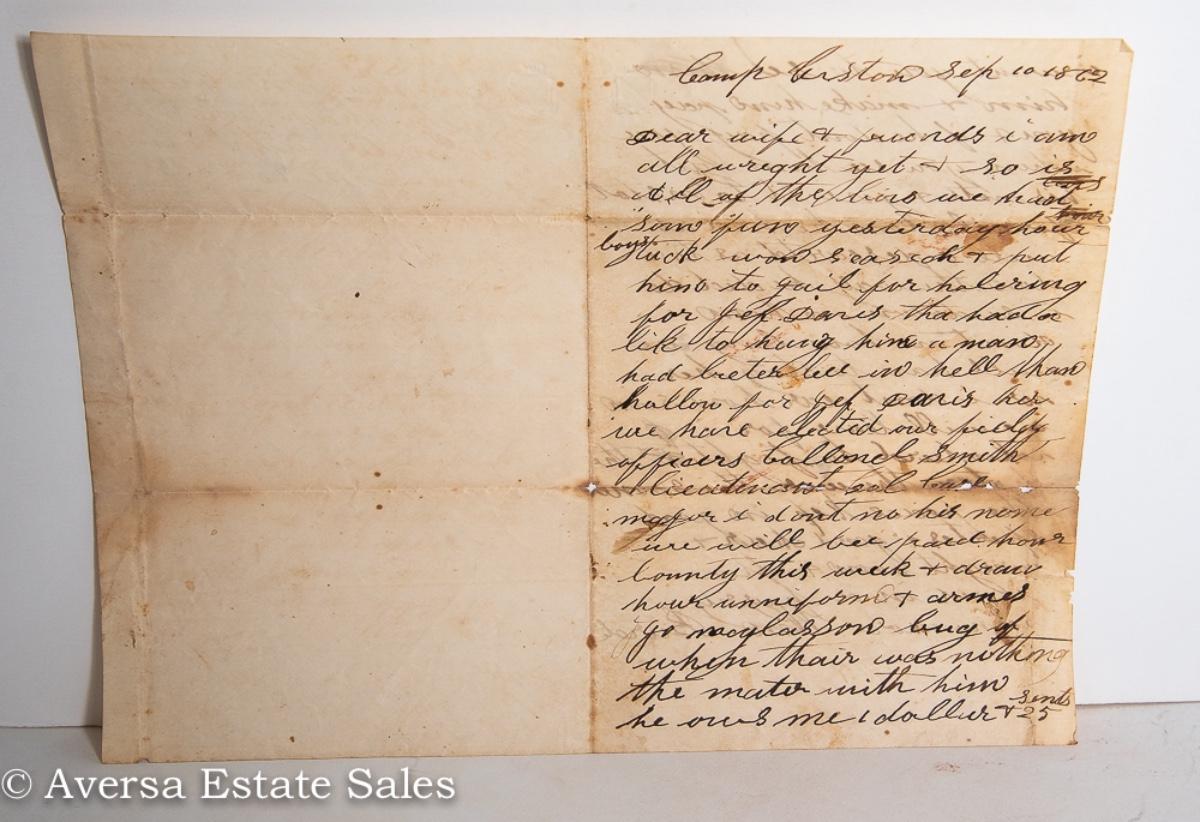 Camp Caston Sep 10 1862
Dear wife & friends i am
all wright yet & so is
All of the bois we had
som fun yesterday hour
boys tuck won seasesh & put
him to gail for holering
for Jef Davis tha had a
lik to hung him a man
had beter bee in hell than
hollow for Jef Davis her
we have elected our field
officers Collonel Smith
lieutenant col
major i dont no his nome
we will bee paid hour
bounty this week & draw
hour unniform & armes
go maglasson bug of
when thair was nothing
the mater with him
he ows me 1 dollar & 25 sents
© Aversa Estate Sales